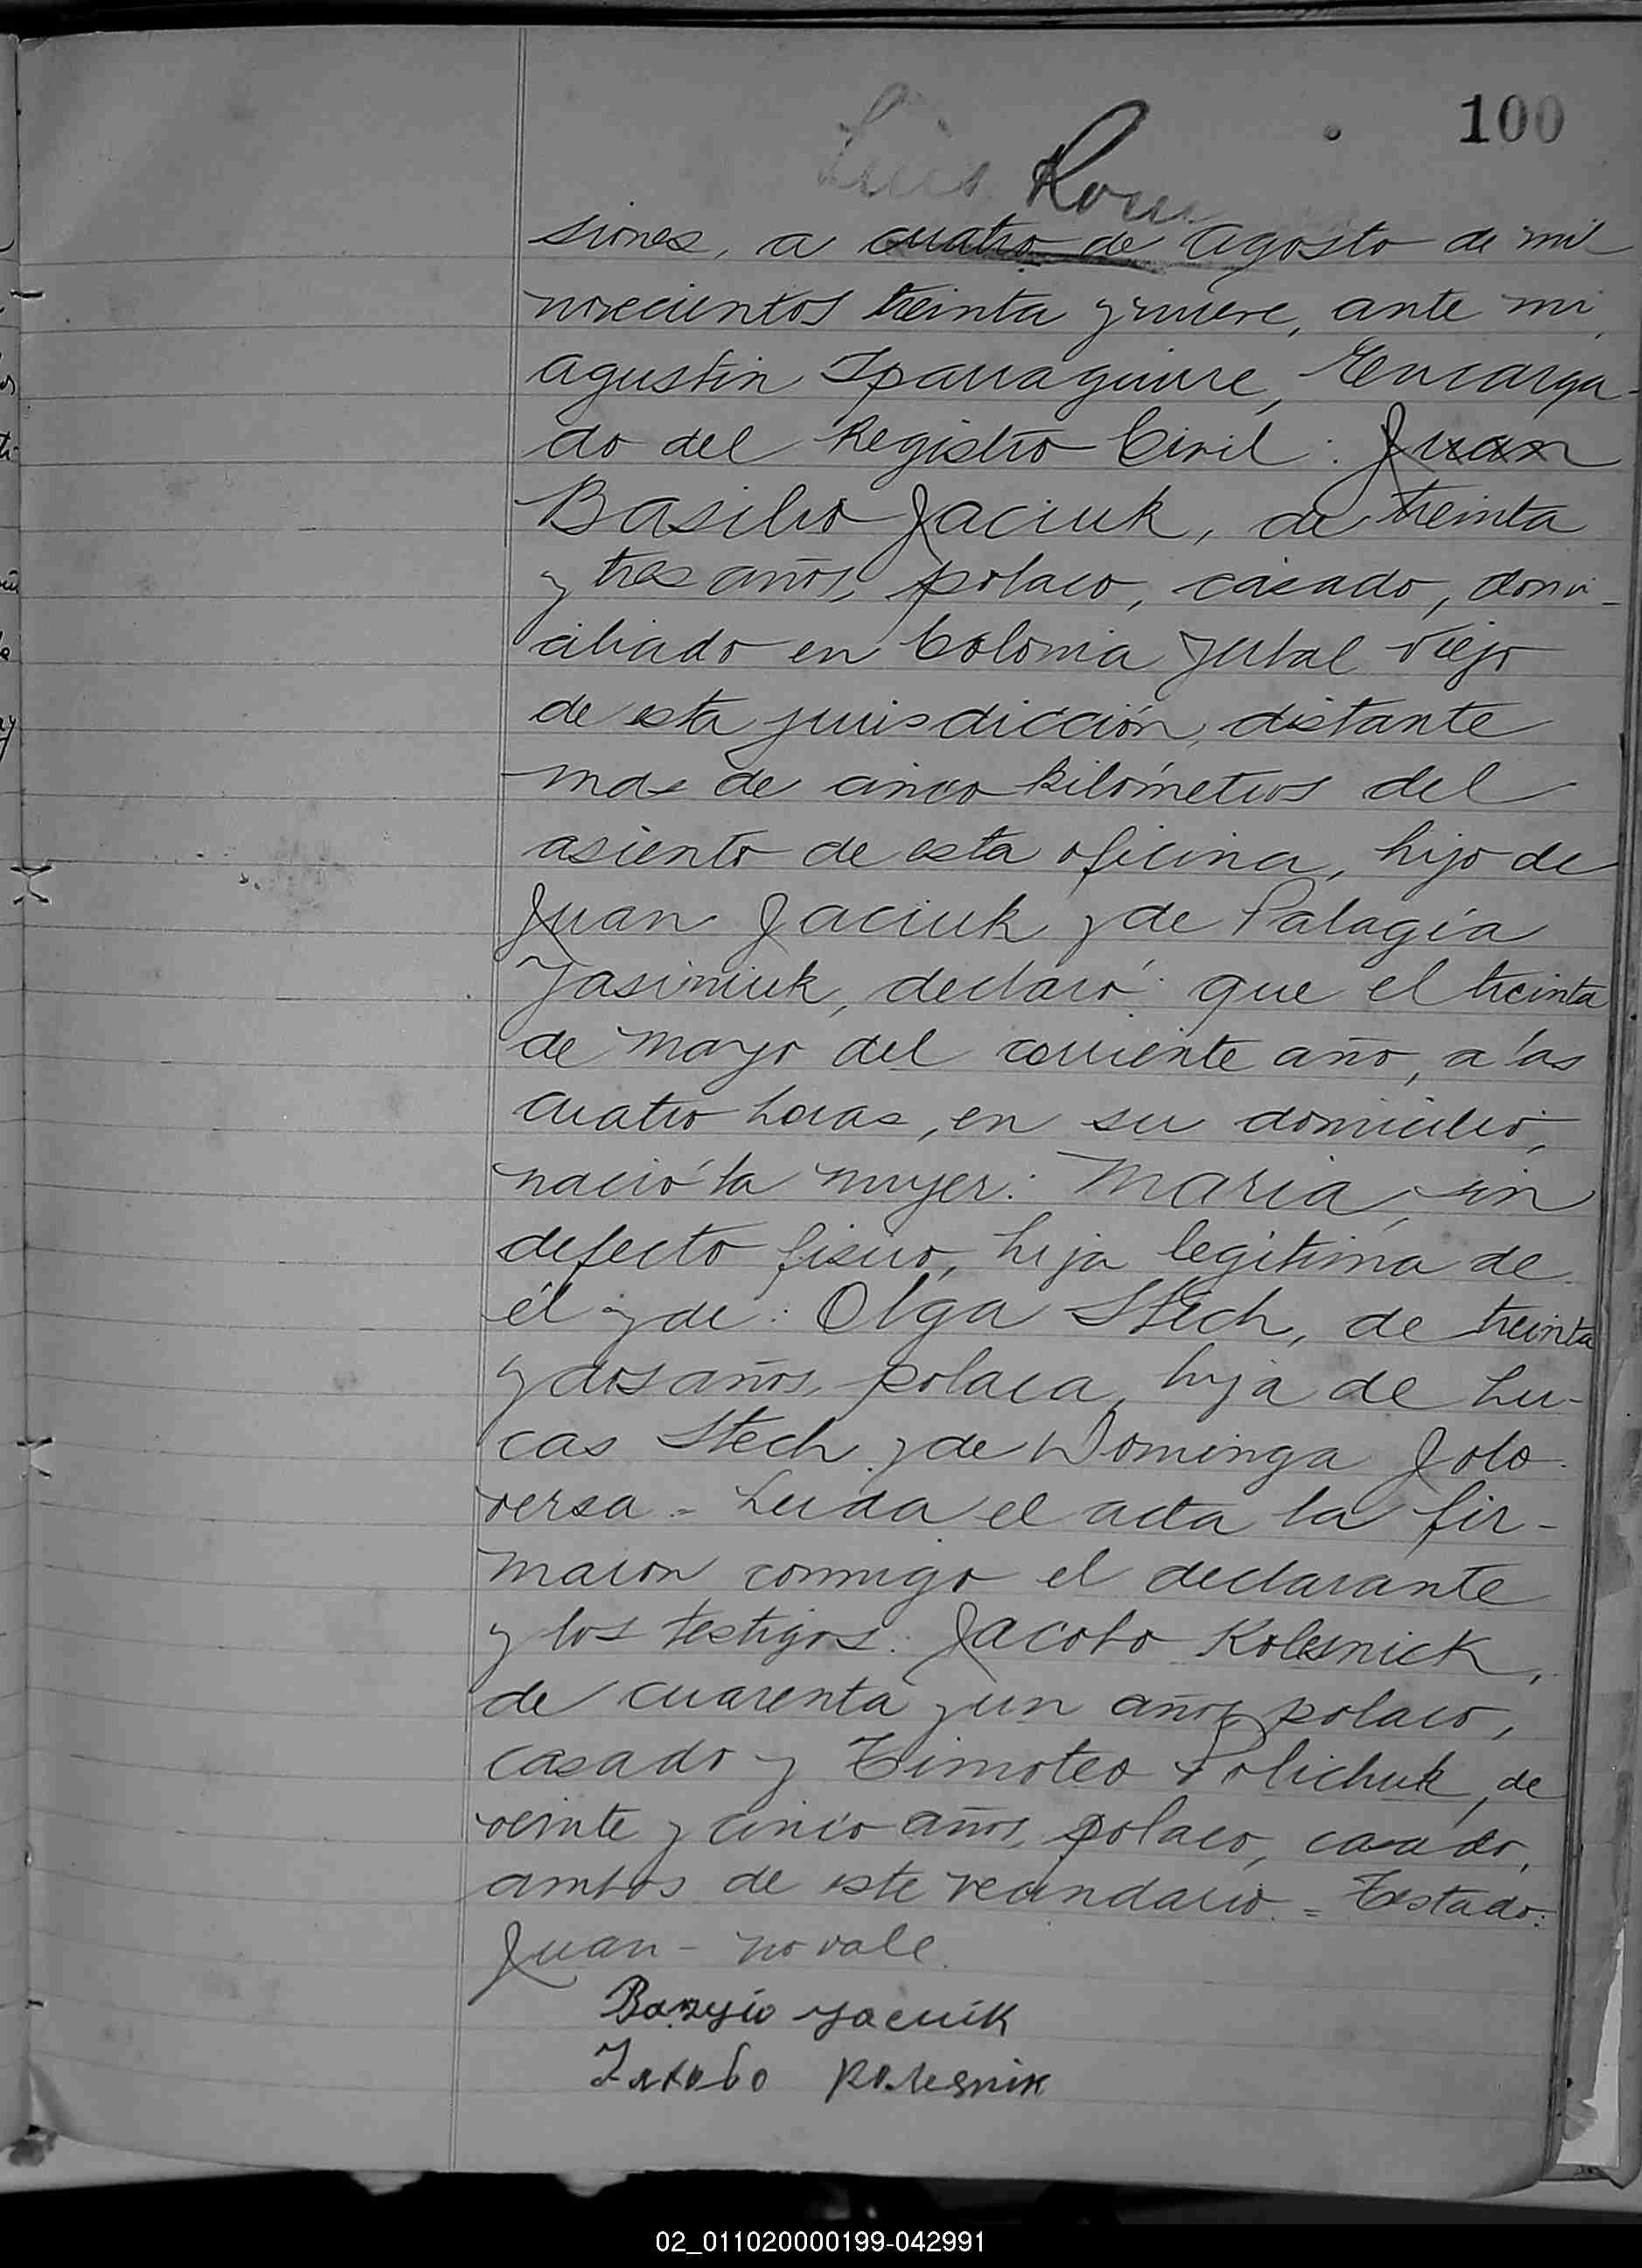 100
Luis Rom
siones, a cuatro de Agosto de mil
novecientos treinta y nueve, ante mi,
Agustin Iparraguirre, Encarga-
do del Registro Civil: Juan
Basilio Jaciuk, de treinta
y tres años, polaco, casado, domi-
ciliado en Colonia Yerbal Viejo
de esta jurisdicción, distante
mas de cinco kilómetros del
asiento de esta oficina, hijo de
Juan Jaciuk y de Palagia
Yasimiuk, declaró: que el treinta
de Mayo del corriente año, a las
cuatro horas, en su domicilio,
nació la mujer: Maria, sin
defecto fisico, hija legitima de
él y de: Olga Stech, de treinta
y dos años, polaca, hija de Lu-
cas Stech y de Dominga Jolo-
versa = Leida el acta la fir-
maron conmigo el declarante
y los testigos: Jacobo Kolesnick,
de cuarenta y un años, polaco,
casado y Timoteo Polichuk, de
veinte y cinco años, polaco, casado,
ambos de este vecindario. = Testado:
Juan - no vale.
Bazyio Jaciuk
02_011020000199-042991